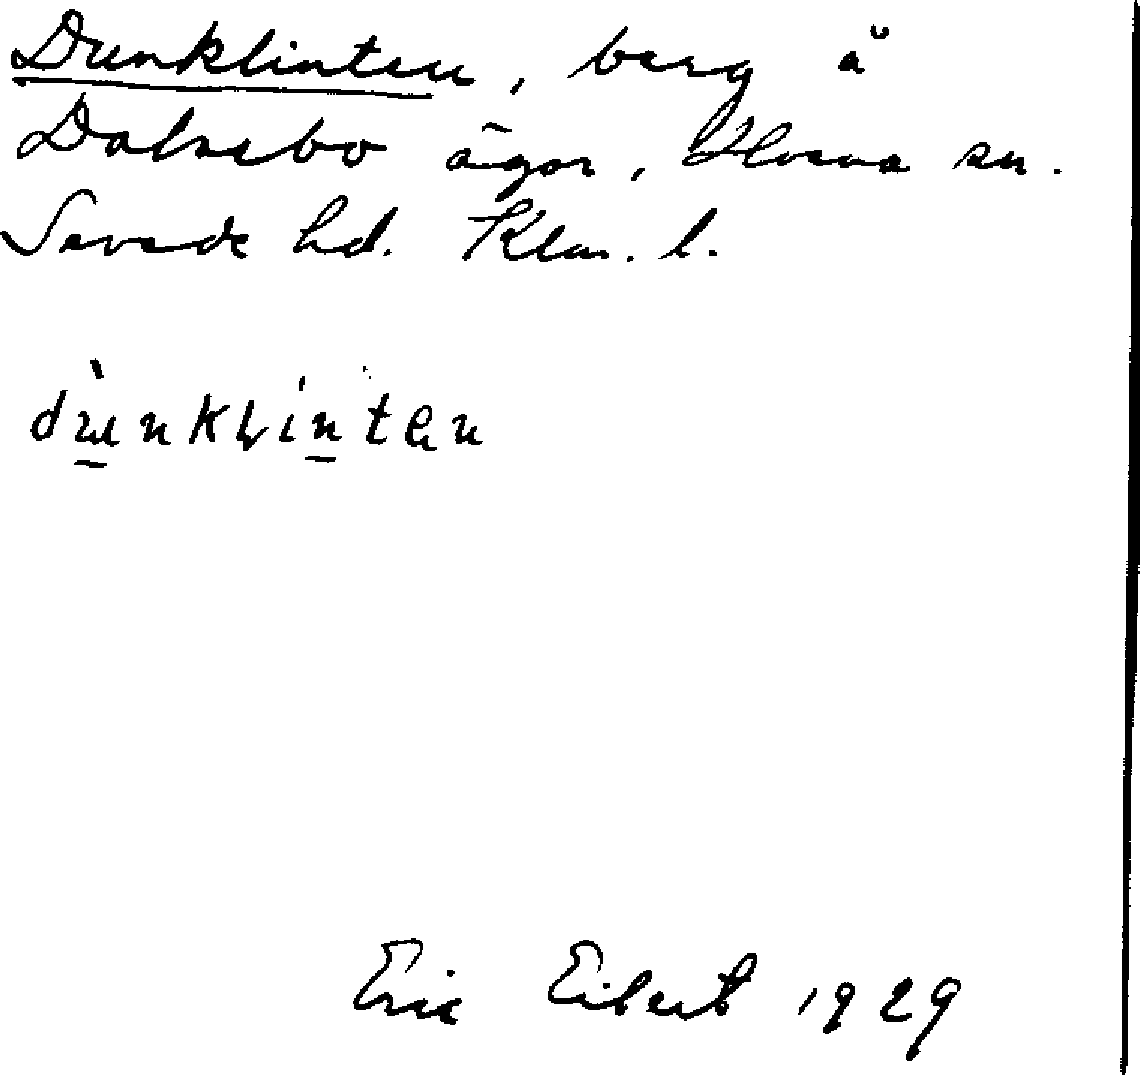 Dunklinten, berg å
Dalsebo ägor, Ulvena sn.
Sevede hd. Klm. l.
dùnklinten
Eric Eibert 1929